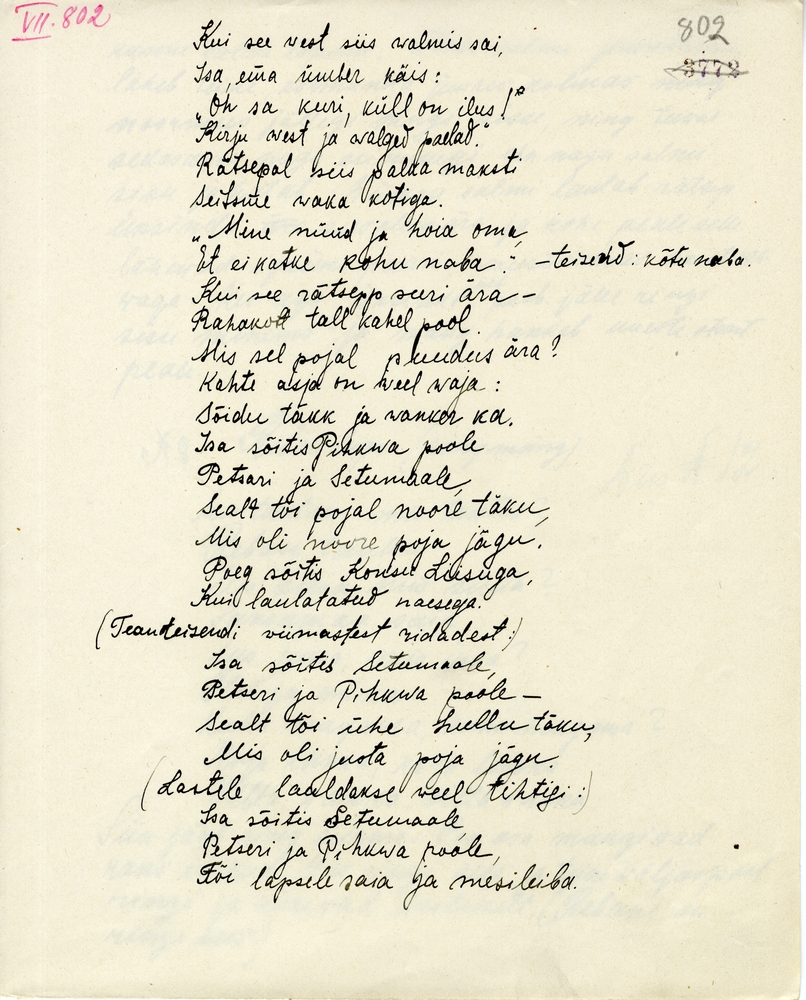 VII. 802
802
3772
Kui see west siis walmis sai,
Isa, ema ümber käis:
„Oh sa kuri, küll on ilus!"
"Kirju west ja walged paelad."
Rätsepal siis palka maksti
Seitsme waka kotiga.
„Mine nüüd ja hoia oma,
Et ei katke kohu naba": – teisend: kõtu naba.
Kui see rätsepp suri ära –
Rahakott tall kahel pool.
Mis sel pojal puudus ära?
Kahte asja on weel waja:
Sõidu täkk ja wanker ka.
Isa sõitis Pihkwa poole
Petsari ja Setumaale,
Sealt tõi pojal noore täku,
Mis oli noore poja jägu.
Poeg sõitis Konsu Liisuga,
Kui laulatatud naesega.
(Tean teisendi viimastest ridadest:)
Isa sõitis Setumaale,
Petseri ja Pihkwa poole –
Sealt tõi ühe hullu täku,
Mis oli justa poja jägu.
(Lastele lauldakse weel tihtigi:)
Isa sõitis Setumaale
Petseri ja Pihkwa poole,
Tõi lapsele saia ja mesileiba.